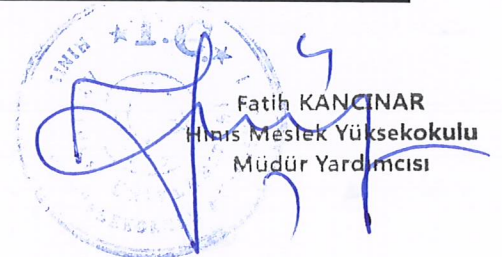 T.C.
Fatih KANCINAR
Hınıs Meslek Yüksekokulu
Müdür Yardımcısı